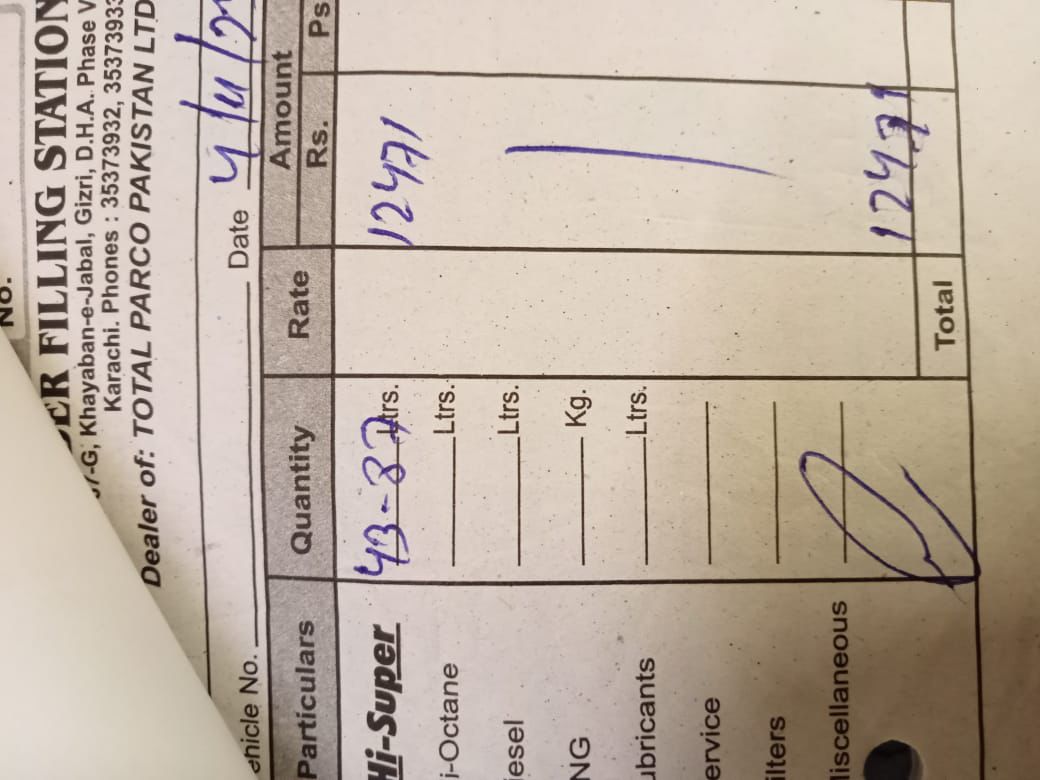 No.
ER FILLING STATION
37-G, Khayaban-e-Jabal, Gizri, D.H.A. Phase V
Karachi. Phones : 35373932, 3537393
Dealer of: TOTAL PARCO PAKISTAN LTD
ehicle No. Date 4/11/2
Particulars Quantity Rate Amount
Rs. Ps
Hi-Super 43-87 Ltrs. 12471
i-Octane Ltrs.
iesel Ltrs.
NG Kg.
ubricants Ltrs.
ervice
ilters
iscellaneous
Total 12471